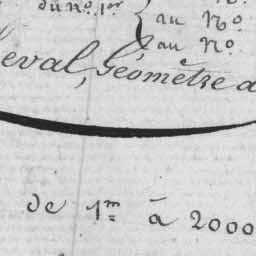 du n.º 1.er
au N.º
au N.º
eval, Géomètre a
de 1.m à 2000